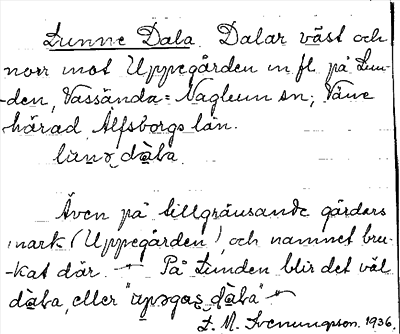 Lunne Dala. Dalar väst och
norr mot Uppegården m fl på Lun-
-den, Vassända-Naglum sn; Väne
härad, Älfsborgs län.
lunə dàba.
Även på tillgränsande gårdars
mark (Uppegården), och namnet bru-
-kat där. — På Lunden blir det väl
dàba, eller "upəgas dàba" —
L. M. Svenungson. 1936.